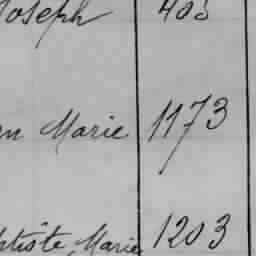 Joseph 403
en Marie 1173
ptiste, Marie 1203